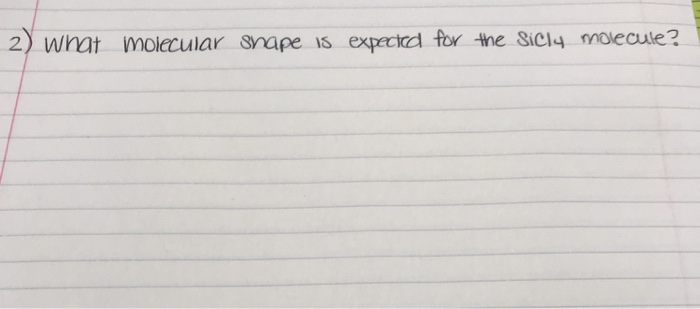 2) What molecular shape is expected for the SiCl4 molecule?